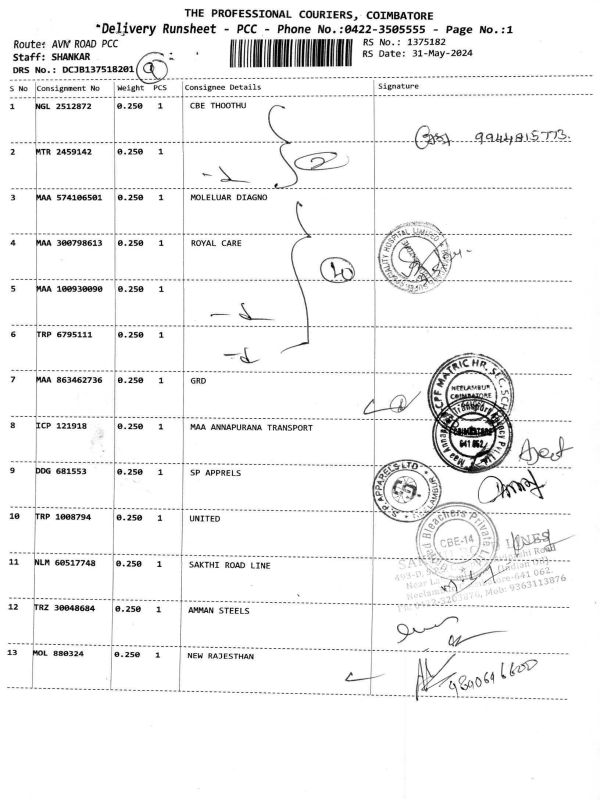 THE PROFESSIONAL COURIERS, COIMBATORE
*Delivery Runsheet - PCC - Phone No.:0422-3505555 - Page No.:1
Route: AVN ROAD PCC
RS No.: 1375182
Staff: SHANKAR
RS Date: 31-May-2024
DRS No.: DCJB137518201
S No Consignment No Weight PCS Consignee Details Signature
1 NGL 2512872 0.250 1 CBE THOOTHU
9944815773.
2 MTR 2459142 0.250 1
2
3 MAA 574106501 0.250 1 MOLELUAR DIAGNO
4 MAA 300798613 0.250 1 ROYAL CARE
5 MAA 100930090 0.250 1
6 TRP 6795111 0.250 1
7 MAA 863462736 0.250 1 GRD
MATRIC HR. SEC. SCH
NEELAMBUR
COIMBATORE
8 ICP 121918 0.250 1 MAA ANNAPURANA TRANSPORT
COIMBATORE
641 062
9 DDG 681553 0.250 1 SP APPRELS
S.P. APPARELS LTD
10 TRP 1008794 0.250 1 UNITED
Bleachers Private
CBE-14
LINES
11 NLM 60517748 0.250 1 SAKTHI ROAD LINE
641 062.
Mob: 9363113876
12 TRZ 30048684 0.250 1 AMMAN STEELS
13 MOL 880324 0.250 1 NEW RAJESTHAN